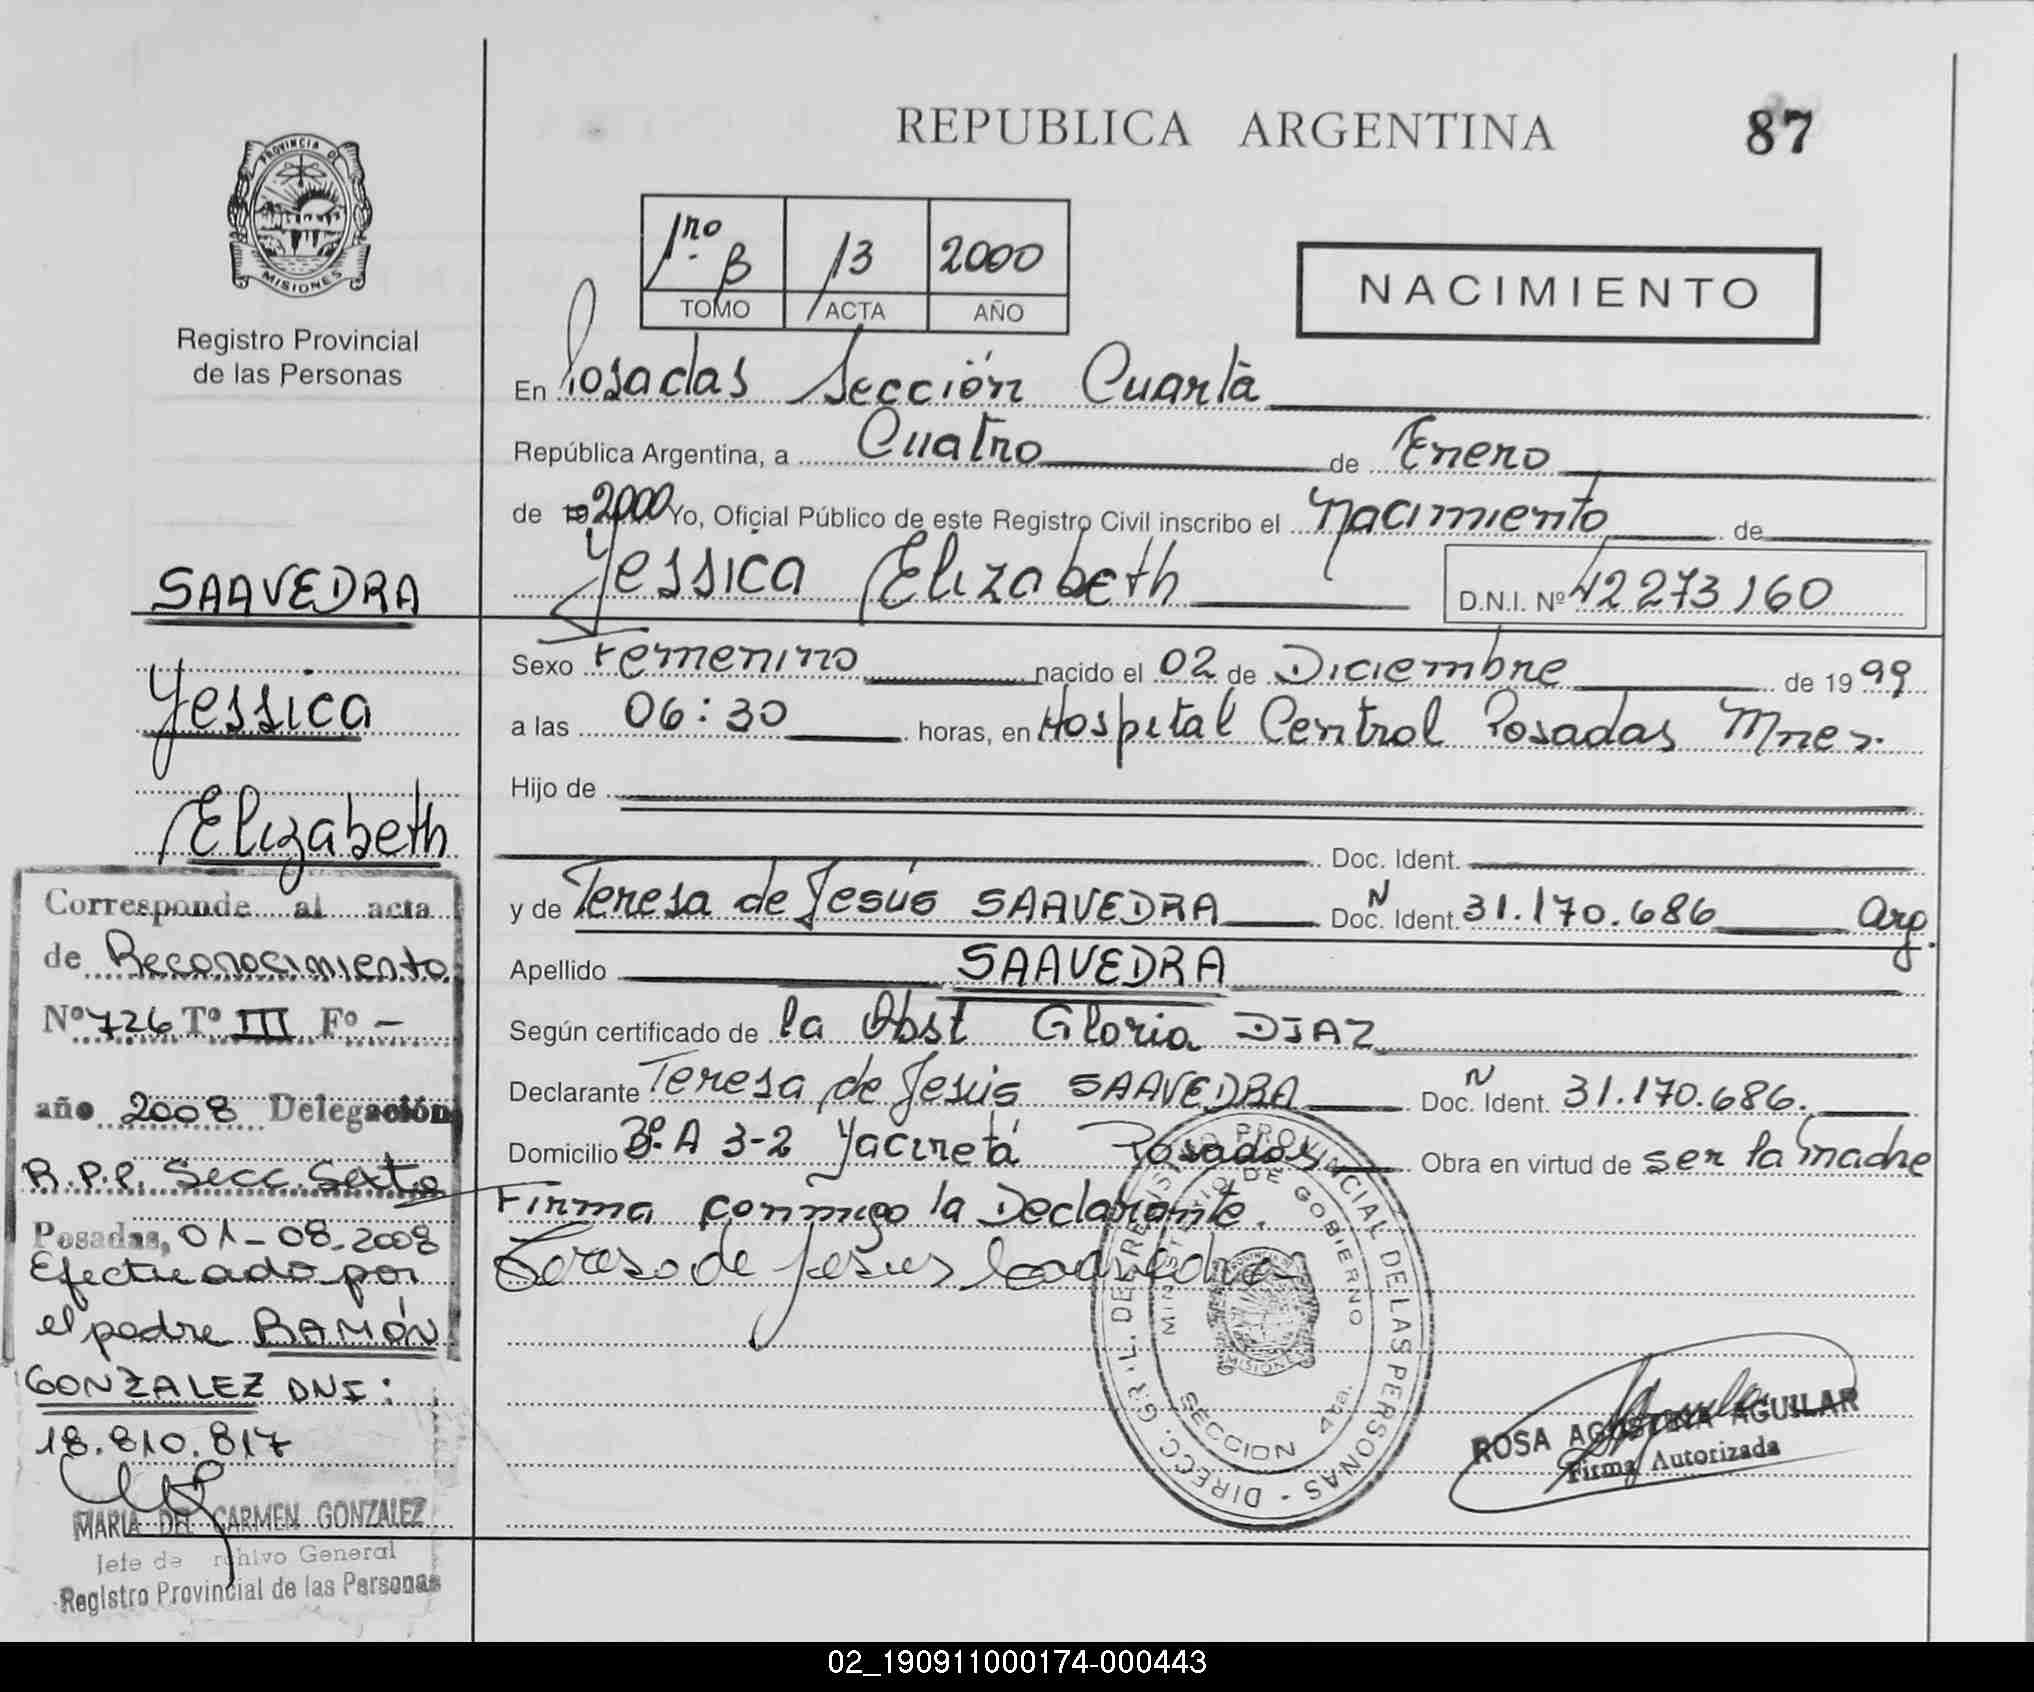 REPUBLICA ARGENTINA
87
PROVINCIA DE
MISIONES
Registro Provincial
de las Personas
1ro B 13 2000
TOMO ACTA AÑO
NACIMIENTO
En Posadas Sección Cuarta
República Argentina, a Cuatro de Enero
de 19 2000 Yo, Oficial Público de este Registro Civil inscribo el Nacimiento de
Yessica Elizabeth D.N.I. Nº 42273160
Sexo Femenino nacido el 02 de Diciembre de 19 99
a las 06:30 horas, en Hospital Central Posadas Mnes.
Hijo de
Doc. Ident.
y de Teresa de Jesús SAAVEDRA Doc. N Ident. 31.170.686 Arg.
Apellido SAAVEDRA
Según certificado de la Obst Gloria DIAZ
Declarante Teresa de Jesús SAAVEDRA Doc. N Ident. 31.170.686.
Domicilio Bº. A 3-2 Yaciretá Posadas Obra en virtud de ser la madre
Firma conmigo la Declarante.
Teresa de Jesus Saavedra
SAAVEDRA
Yessica
Elizabeth
Corresponde al acta
de Reconocimiento
Nº 726 Tº III Fº -
año 2008 Delegación
R.P.P. Secc. Sexta
Posadas, 01-08-2008
Efectuado por
el padre RAMÓN
GONZALEZ DNI:
18.810.817
MARIA DEL CARMEN GONZALEZ
Jefe de Archivo General
Registro Provincial de las Personas
DIRECC. GR'L. DEL REGISTRO PROVINCIAL DE LAS PERSONAS -
MINISTERIO DE GOBIERNO
MISIONES
SECCION 4ta.
ROSA AGOSTINA AGUILAR
Firma Autorizada
02_190911000174-000443